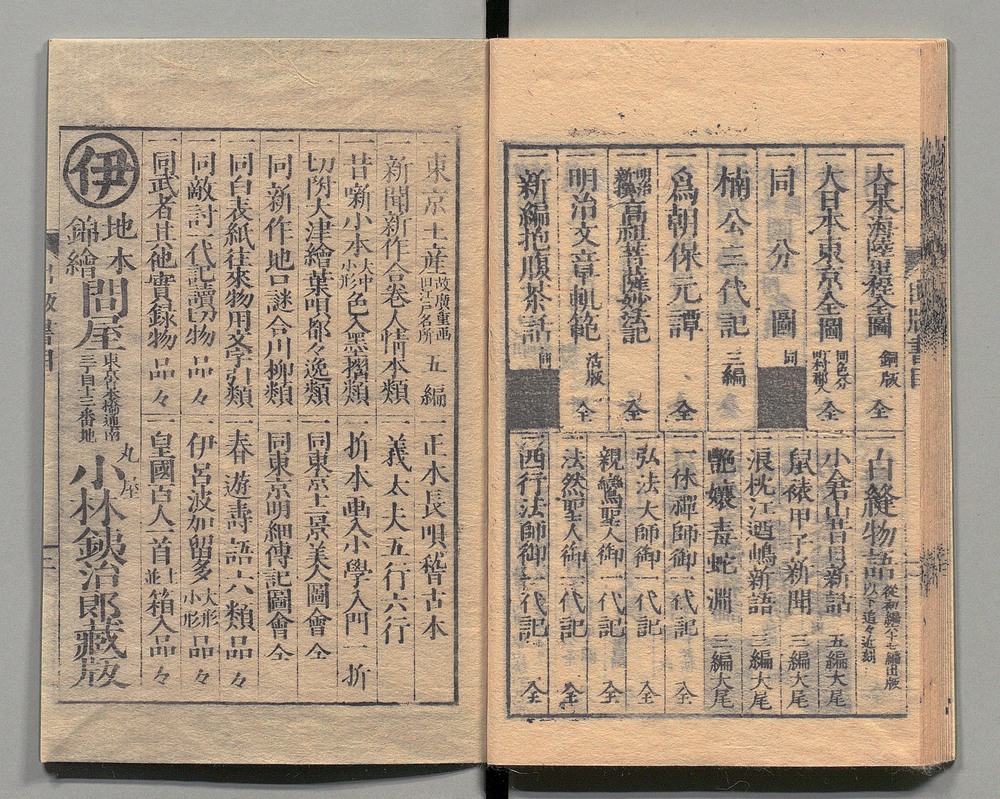 一大日本海陸里程全圖 銅版 全
一大日本東京全圖 同色分 町村郡入 全
一同 分圖 同
一楠公三代記 三編
一爲朝保元譚 全
一明治新撰高祖菩薩妙法記 全
一明治文章軌範 活版 全
一新編抱腹茶話 前
一白縫物語 從初編六十七編出版 以下追々近刻
一小倉山昔日新話 五編大尾
一鼠裱甲子新聞 三編大尾
一浪枕江迺嶋新語 三編大尾
一艶孃毒蛇淵 三編大尾
一一休禪師御一代記 全
一弘法大師御一代記 全
一親鸞聖人御一代記 全
一法然聖人御一代記 全
一西行法師御一代記 全
東京土産 故廣重画 旧江戸名所 五編
一新聞新作合巻人情本類
一昔噺小本 大中小形 色入墨摺類
一切附大津繪葉唄都々逸類
一同新作地口謎合川柳類
一同白表紙往來物用文字引類
一同敵討一代記讀切物 品々
一同武者其他實録物 品々
一正本長唄稽古本
一義太夫五行六行
一折本画入小學入門 一折
一同東京十二景美人圖會 全
一同東京明細傳記圖會 全
一春遊壽語六類 品々
一伊呂波加留多 大形小形 品々
一皇國百人一首 上並 箱入 品々
伊 地本錦繪問屋 東京日本橋通南三丁目十三番地
丸屋 小林鉄治郎藏版